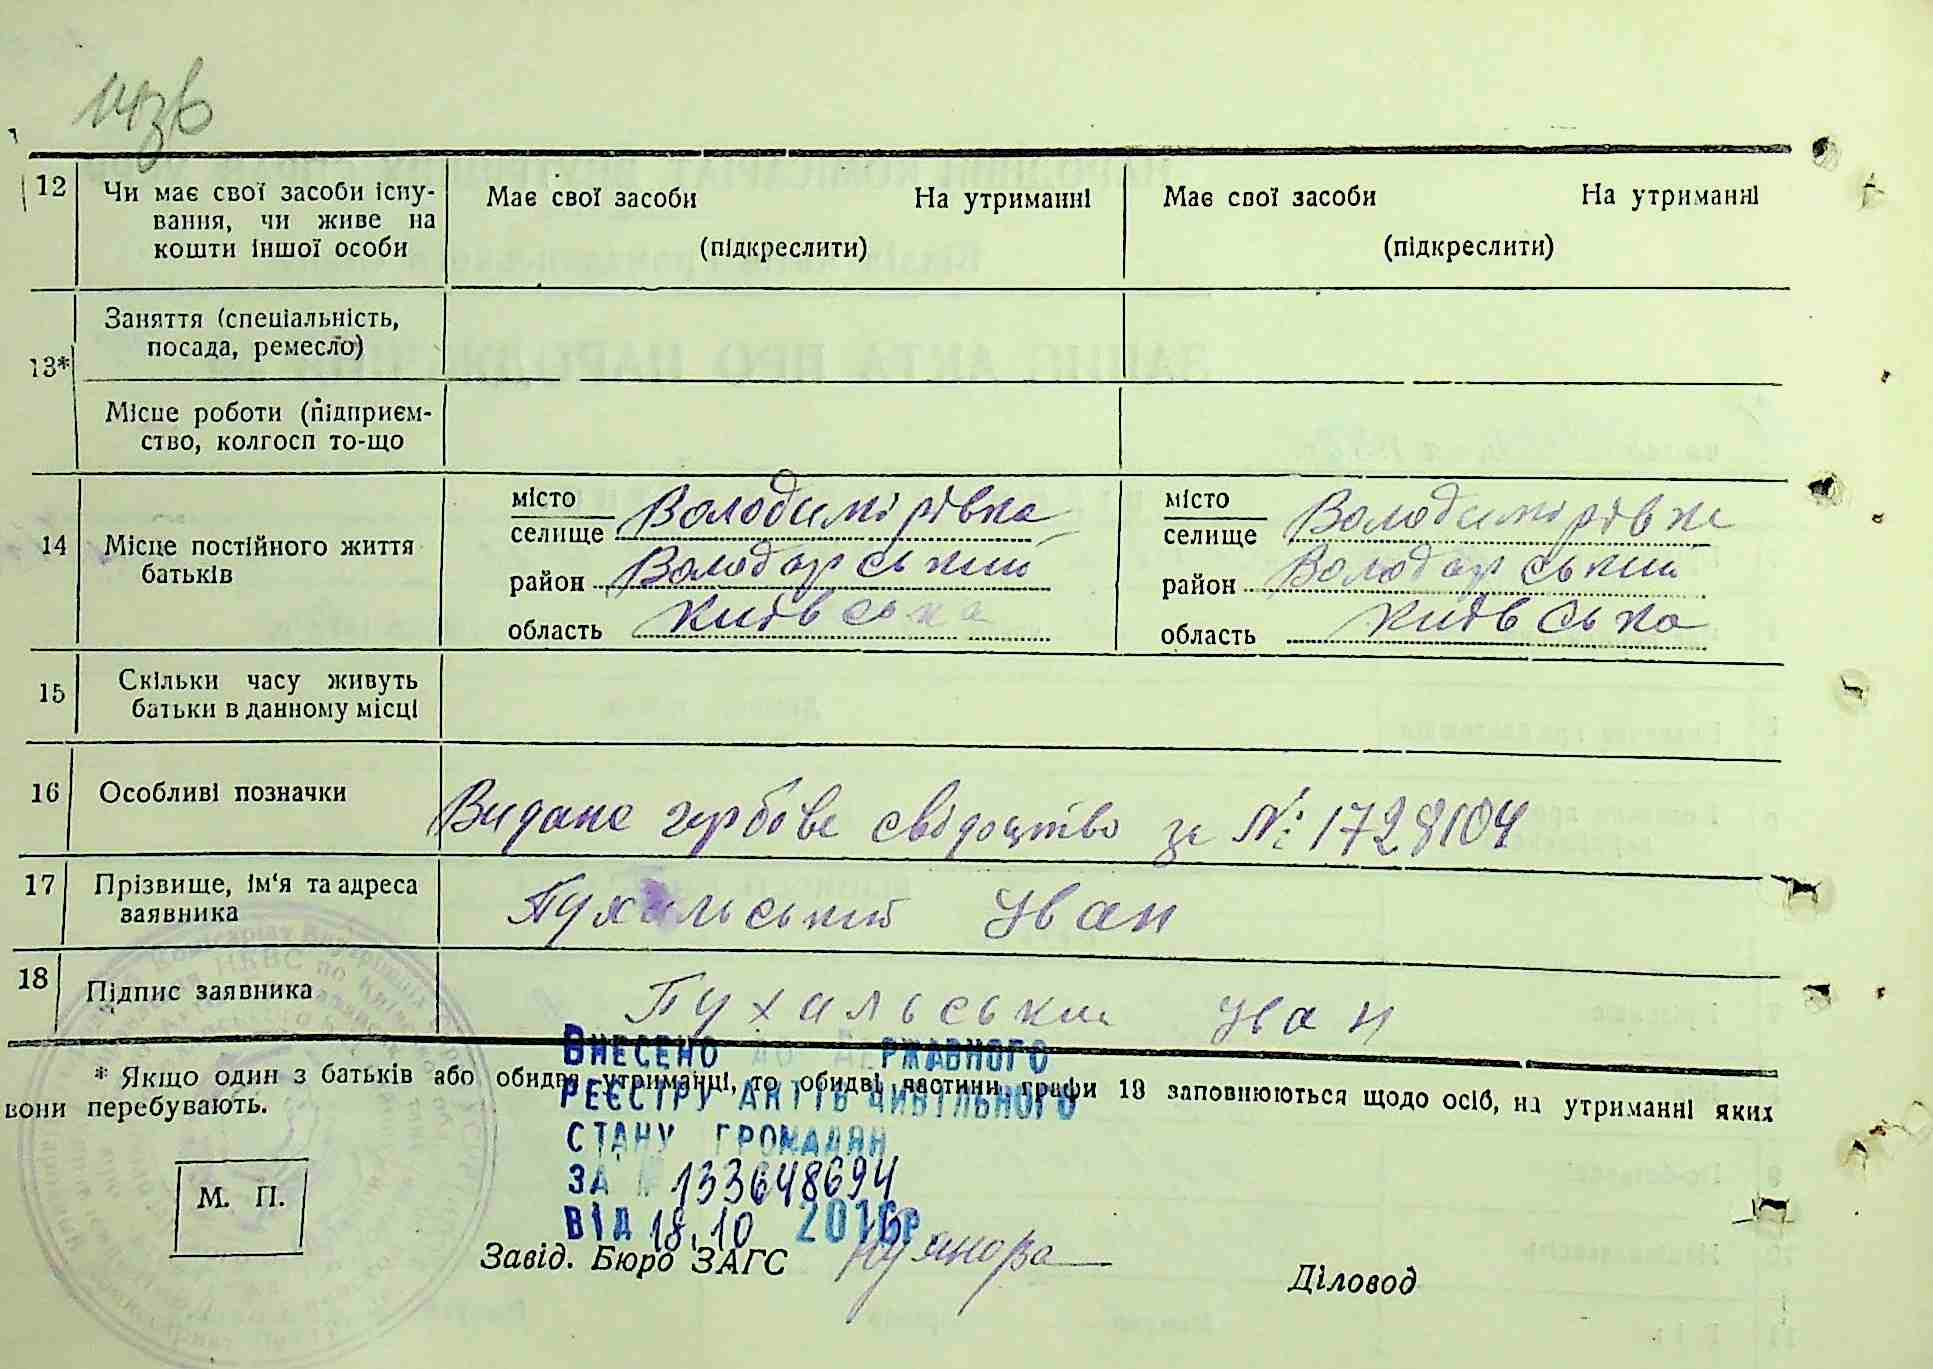 12 Чи має свої засоби існу-
вання, чи живе на
кошти іншої особи
Має свої засоби На утриманні
(підкреслити)
Має свої засоби На утриманні
(підкреслити)
13*
Заняття (спеціальність,
посада, ремесло)
Місце роботи (підприєм-
ство, колгосп то-що
14 Місце постійного життя
батьків
місто
селище Володимірівка
район Володарський
область Київська
місто
селище Володимірівка
район Володарський
область Київська
15 Скільки часу живуть
батьки в данному місці
16 Особливі позначки
Видане гербове свідоцтво за №: 1728104
17 Прізвище, ім'я та адреса
заявника
Пухальський Іван
18 Підпис заявника
Пухальський Іван
* Якщо один з батьків або обидва утриманці, то обидві частини графи 13 заповнюються щодо осіб, на утриманні яких
вони перебувають.
ВНЕСЕНО ДО ДЕРЖАВНОГО
РЕЄСТРУ АКТІВ ЦИВІЛЬНОГО
СТАНУ ГРОМАДЯН
ЗА № 133648694
ВІД 18.10 2016р
М. П.
Завід. Бюро ЗАГС
Діловод